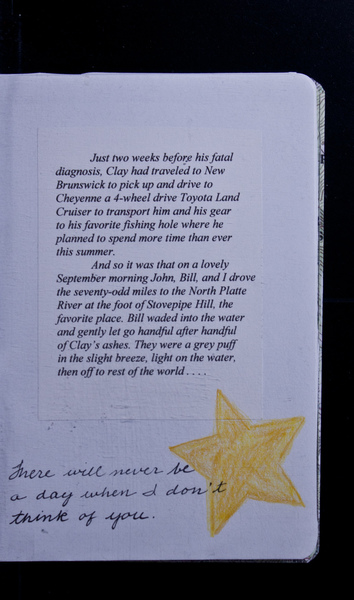 Just two weeks before his fatal
diagnosis, Clay had traveled to New
Brunswick to pick up and drive to
Cheyenne a 4-wheel drive Toyota Land
Cruiser to transport him and his gear
to his favorite fishing hole where he
planned to spend more time than ever
this summer.
And so it was that on a lovely
September morning John, Bill, and I drove
the seventy-odd miles to the North Platte
River at the foot of Stovepipe Hill, the
favorite place. Bill waded into the water
and gently let go handful after handful
of Clay's ashes. They were a grey puff
in the slight breeze, light on the water,
then off to rest of the world . . . .
There will never be
a day when I don't
think of you.